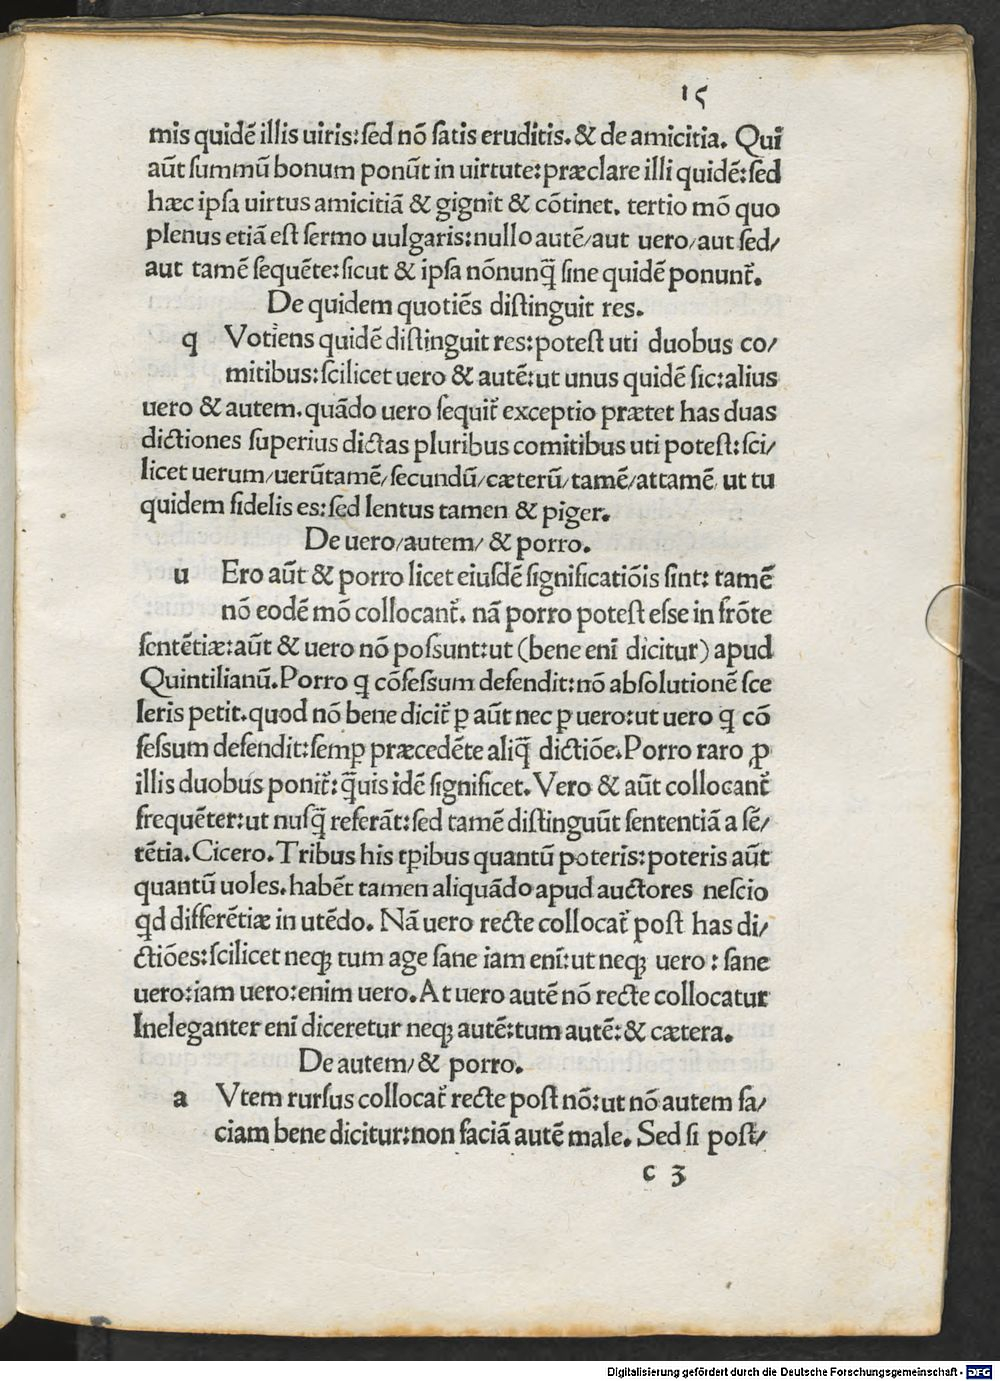 15
mis quidē illis uiris:sed nō satis eruditis.& de amicitia. Qui
aūt summū bonum ponūt in uirtute:præclare illi quidē:sed
hæc ipsa uirtus amicitiā & gignit & cōtinet. tertio mō quo
plenus etiā est sermo uulgaris:nullo autē/aut uero/aut sed/
aut tamē sequēte:sicut & ipsa nōnunq̄ sine quidē ponunt̃.
De quidem quotiēs distinguit res.
q Votiens quidē distinguit res:potest uti duobus co/
mitibus:scilicet uero & autē:ut unus quidē sic:alius
uero & autem.quādo uero sequit̃ exceptio prætet has duas
dictiones superius dictas pluribus comitibus uti potest:sci/
licet uerum/uerūtamē/secundū/cæterū/tamē/attamē. ut tu
quidem fidelis es:sed lentus tamen & piger.
De uero/autem/ & porro.
u Ero aūt & porro licet eiusdē significatiōis sint: tamē
nō eodē mō collocant̃. nā porro potest esse in frōte
sentētiæ:aūt & uero nō possunt:ut (bene enī dicitur) apud
Quintilianū.Porro q cōfessum defendit:nō absolutionē sce
leris petit.quod nō bene dicit̃ ꝑ aūt nec ꝑ uero:ut uero q cō
fessum defendit:semꝑ præcedēte aliq̄ dictiōe.Porro raro ꝓ
illis duobus ponit̃: q̄uis idē significet.Vero & aūt collocant̃
frequēter:ut nusq̄ referāt:sed tamē distinguūt sententiā a sē/
tētia.Cicero.Tribus his tꝑibus quantū poteris:poteris aūt
quantū uoles.habēt tamen aliquādo apud auctores nescio
qd differētiæ in utēdo. Nā uero recte collocat̃ post has di/
ctiōes:scilicet neqꝫ tum age sane iam enī:ut neqꝫ uero : sane
uero:iam uero:enim uero.At uero autē nō recte collocatur
Ineleganter enī diceretur neqꝫ autē:tum autē:& cætera.
De autem/& porro.
a Vtem rursus collocat̃ recte post nō:ut nō autem fa/
ciam bene dicitur:non faciā autē male. Sed si post/
c 3
Digitalisierung gefördert durch die Deutsche Forschungsgemeinschaft - DFG